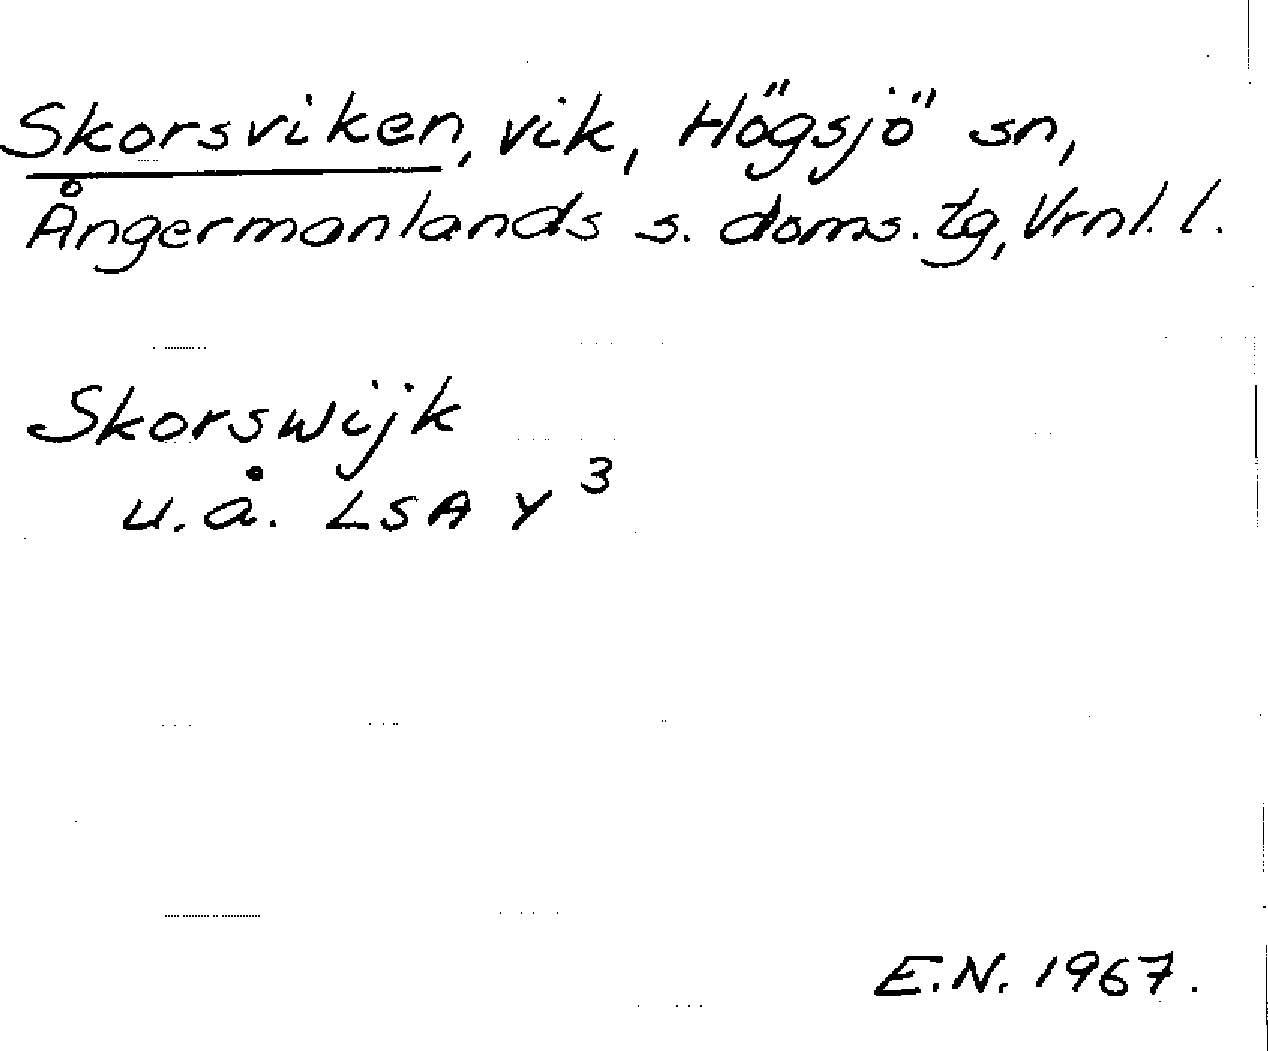 Skorsviken, vik, Högsjö sn,
Ångermanlands s. doms. tg, Vrnl. l.
Skorswijk
u. å. LSA Y 3
E.N. 1967.